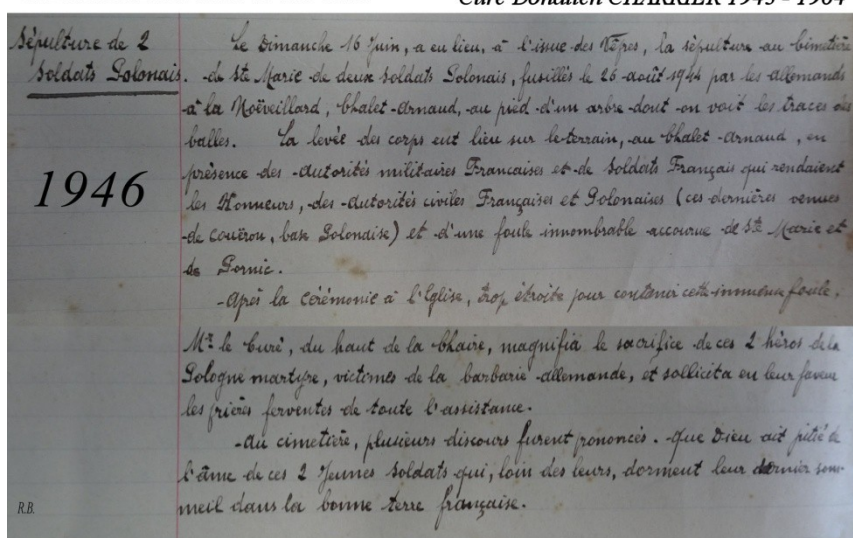 Curé Donatien CHARRIER 1945 - 1964
Sépulture de 2
Soldats Polonais.
1946
Le Dimanche 16 Juin, a eu lieu, à l'issue des Vêpres, la sépulture au Cimetière
de Ste Marie de deux soldats Polonais, fusillés le 26 août 1944 par les allemands
à la Noëveillard, Chalet-Arnaud, au pied d'un arbre dont on voit les traces des
balles. La levée des corps eut lieu sur le terrain, au Chalet Arnaud, en
présence des Autorités militaires Francaises et de Soldats Français qui rendaient
les Honneurs, des Autorités civiles Françaises et Polonaises (ces dernières venues
de Couëron, base Polonaise) et d'une foule innombrable accourue de Ste Marie et
de Pornic.
Après la Cérémonie à l'Eglise, trop étroite pour contenir cette immense foule,
Mr le Curé, du haut de la Chaire, magnifia le sacrifice de ces 2 héros de la
Pologne martyre, victimes de la barbarie allemande, et sollicita en leur faveur
les prières ferventes de toute l'assistance.
Au cimetière, plusieurs discours furent prononcés. Que Dieu ait pitié de
l'âme de ces 2 Jeunes Soldats qui, loin des leurs, dorment leur dernier som-
meil dans la bonne terre française.
R.B.